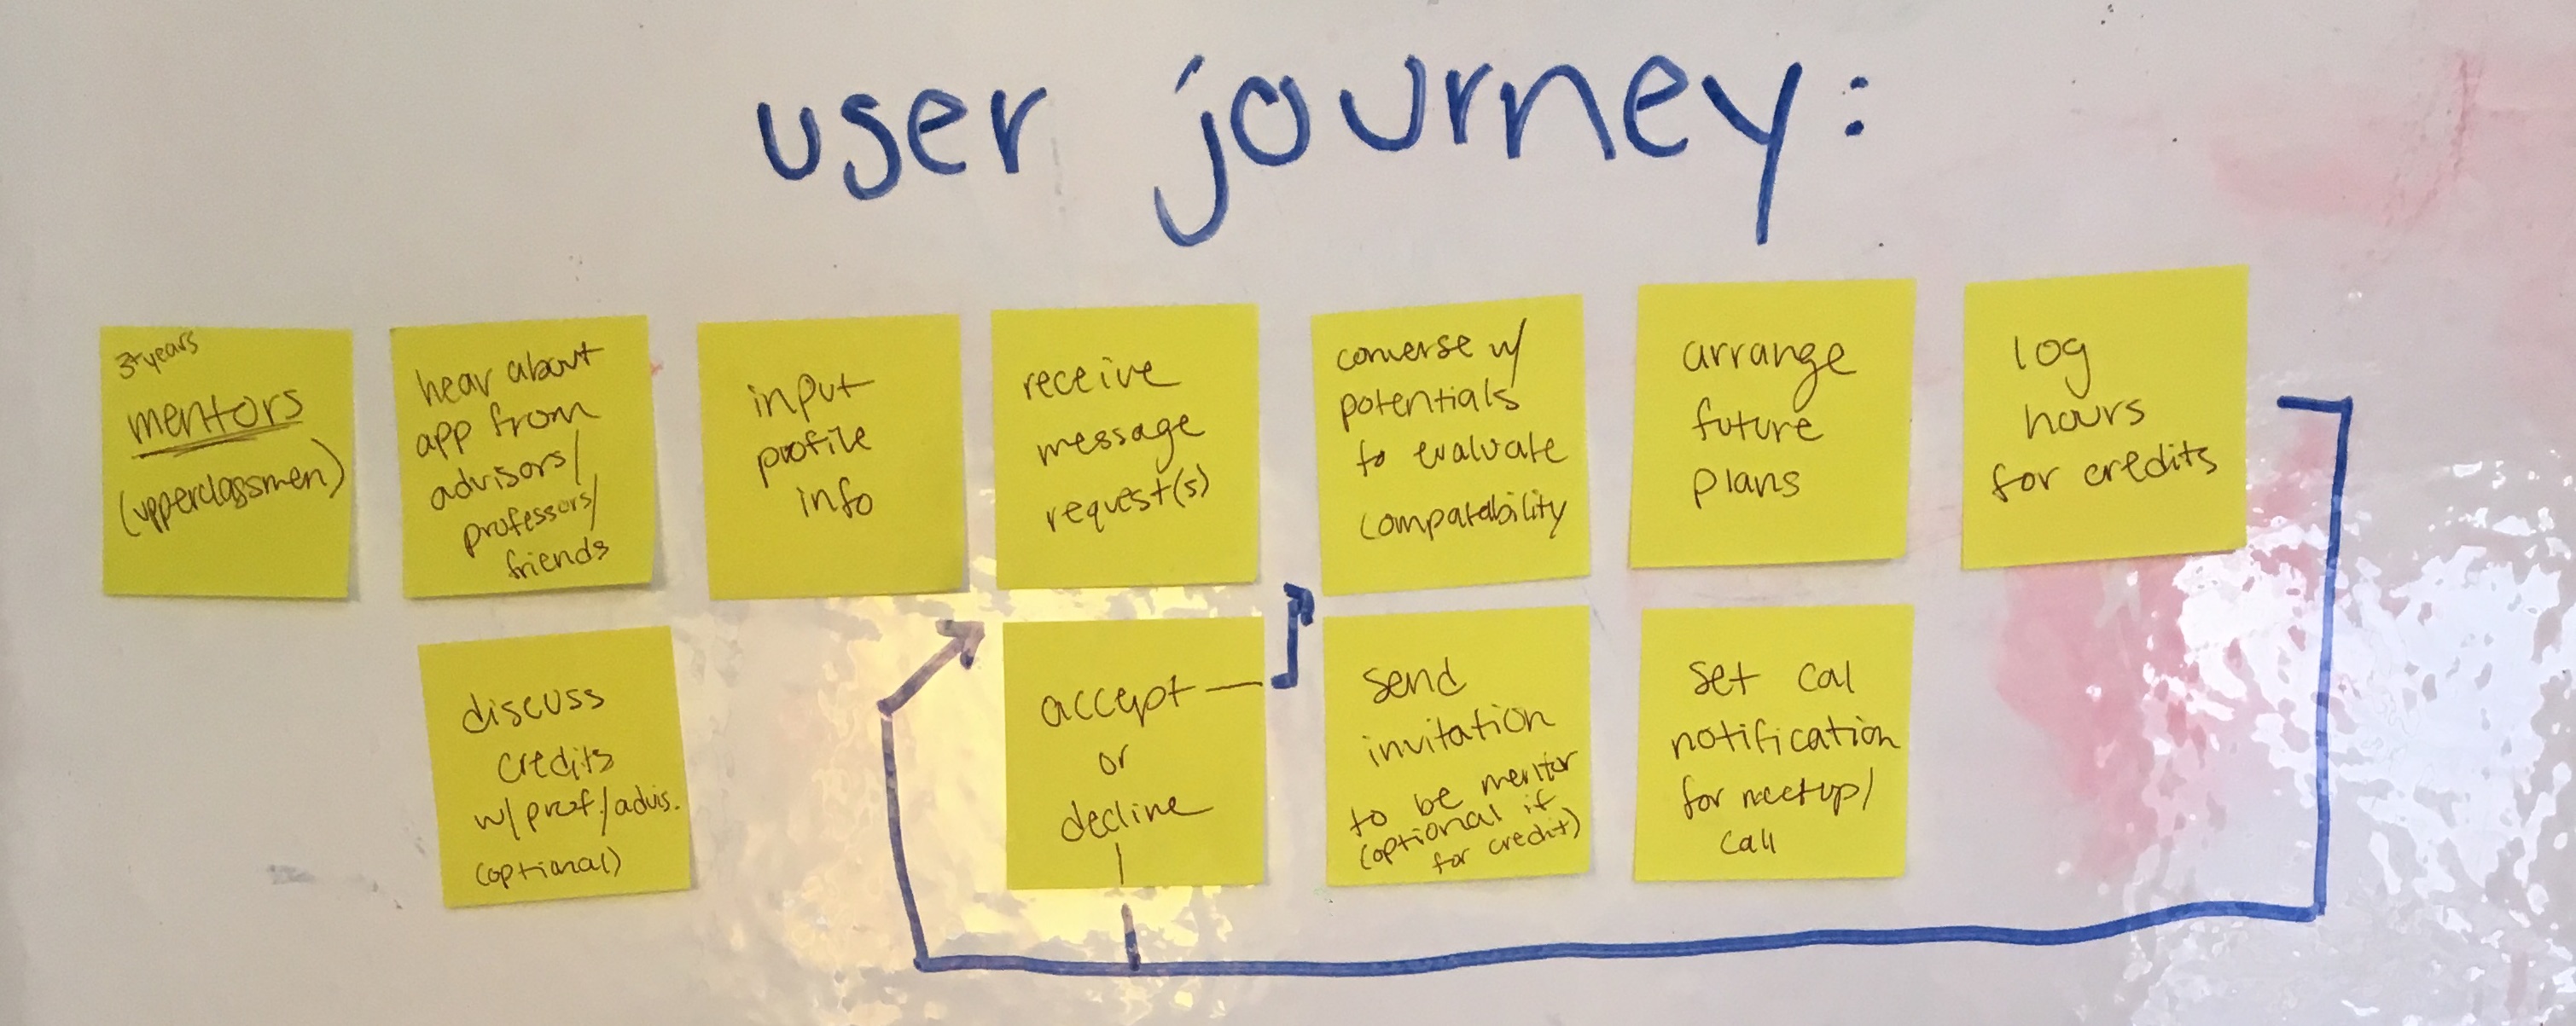 user journey:
3+years
mentors
(upperclassmen)
hear about
app from
advisors/
professors/
friends
input
profile
info
receive
message
request(s)
converse w/
potentials
to evaluate
compatability
arrange
future
plans
log
hours
for credits
discuss
credits
w/prof./advis.
(optional)
accept
or
decline
send
invitation
to be mentor
(optional if
for credit)
set cal
notification
for meetup/
call